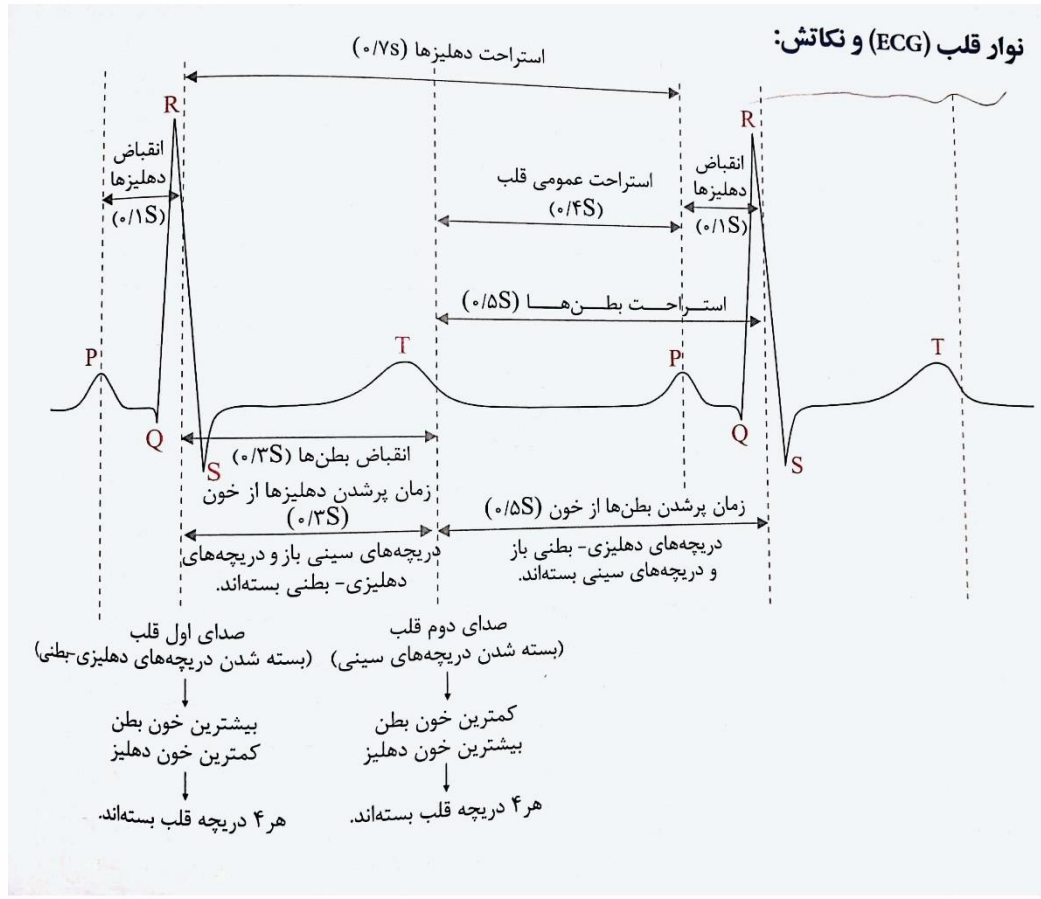 نوار قلب (ECG) و نکاتش:
استراحت دهلیزها (۰/۷s)
R
R
انقباض
دهلیزها
(۰/۱S)
استراحت عمومی قلب
(۰/۴S)
انقباض
دهلیزها
(۰/۱S)
استــراحــت بطــن‌هــا (۰/۵S)
P
T
P
T
Q
S
Q
S
انقباض بطن‌ها (۰/۳S)
زمان پرشدن دهلیزها از خون
(۰/۳S)
زمان پرشدن بطن‌ها از خون (۰/۵S)
دریچه‌های سینی باز و دریچه‌های
دهلیزی- بطنی بسته‌اند.
دریچه‌های دهلیزی- بطنی باز
و دریچه‌های سینی بسته‌اند.
صدای اول قلب
(بسته شدن دریچه‌های دهلیزی-بطنی)
بیشترین خون بطن
کمترین خون دهلیز
هر ۴ دریچه قلب بسته‌اند.
صدای دوم قلب
(بسته شدن دریچه‌های سینی)
کمترین خون بطن
بیشترین خون دهلیز
هر ۴ دریچه قلب بسته‌اند.